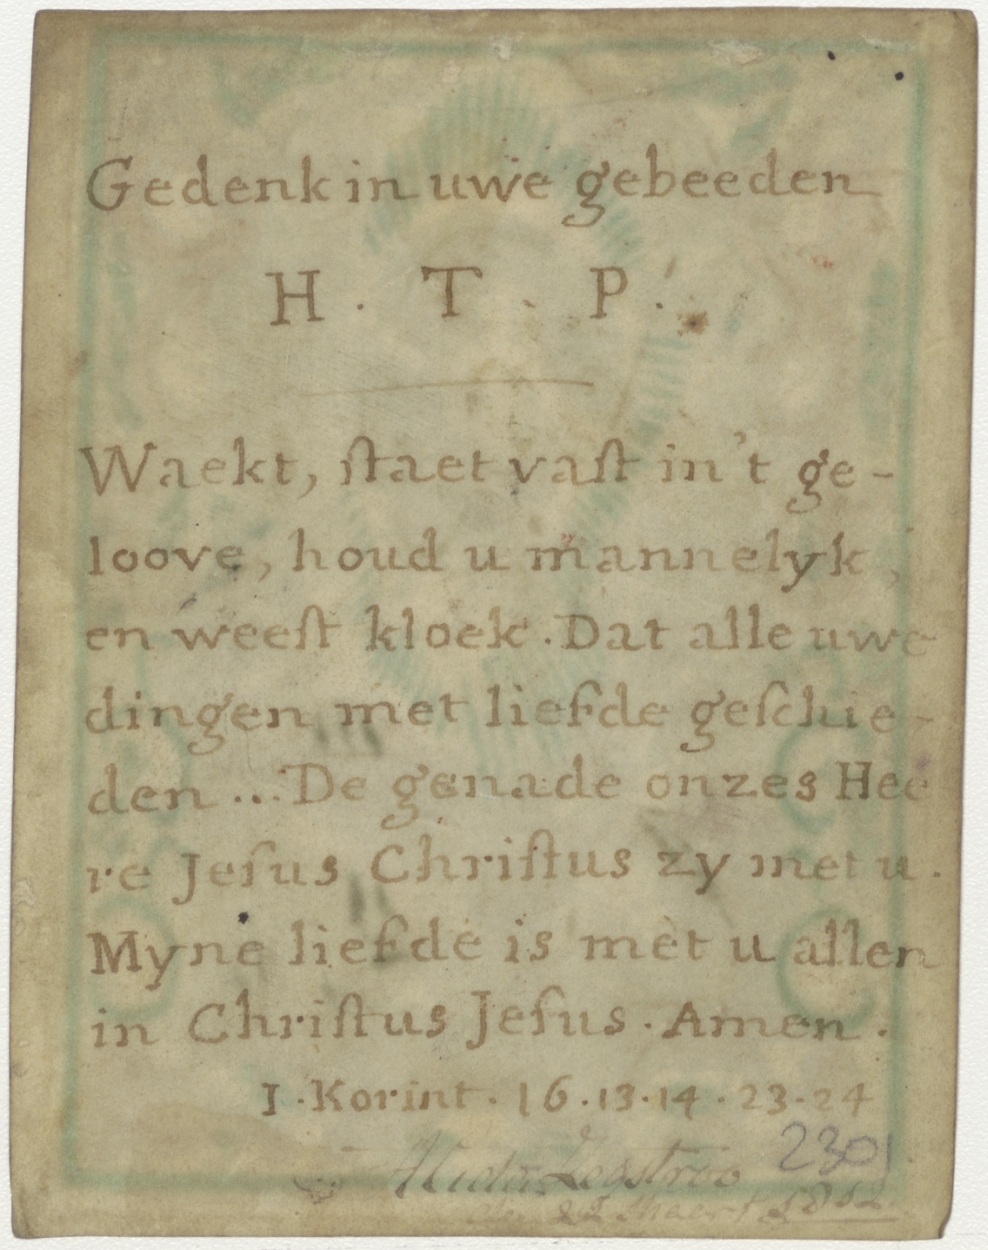 Gedenk in uwe gebeeden
H. T. P.
Waekt, ſtaet vaſt in't ge-
loove, houd u mannelyk,
en weeſt kloek. Dat alle uwe
dingen met liefde geſchie-
den... De genade onzes Hee
re Jeſus Chriſtus zy met u.
Myne liefde is met u allen
in Chriſtus Jeſus. Amen.
I. Korint. 16.13.14.23.24
230